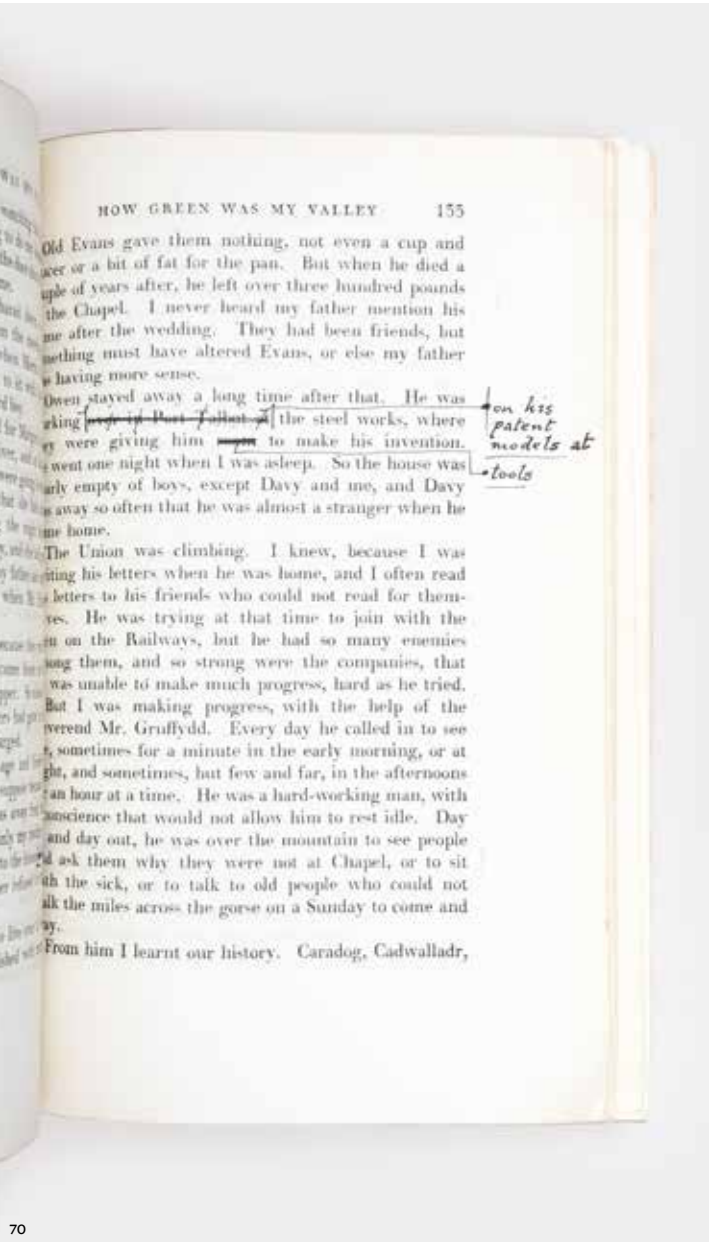 HOW GREEN WAS MY VALLEY 155
Old Evans gave them nothing, not even a cup and
ucer or a bit of fat for the pan. But when he died a
uple of years after, he left over three hundred pounds
the Chapel. I never heard my father mention his
me after the wedding. They had been friends, but
mething must have altered Evans, or else my father
s having more sense.
Owen stayed away a long time after that. He was
rking over in Port Talbot at the steel works, where
on his
patent
models at
ey were giving him to make his invention.
tools
went one night when I was asleep. So the house was
arly empty of boys, except Davy and me, and Davy
s away so often that he was almost a stranger when he
me home.
The Union was climbing. I knew, because I was
iting his letters when he was home, and I often read
letters to his friends who could not read for them-
ves. He was trying at that time to join with the
en on the Railways, but he had so many enemies
ong them, and so strong were the companies, that
was unable to make much progress, hard as he tried.
But I was making progress, with the help of the
verend Mr. Gruffydd. Every day he called in to see
e, sometimes for a minute in the early morning, or at
ght, and sometimes, but few and far, in the afternoons
r an hour at a time. He was a hard-working man, with
conscience that would not allow him to rest idle. Day
and day out, he was over the mountain to see people
d ask them why they were not at Chapel, or to sit
ith the sick, or to talk to old people who could not
alk the miles across the gorse on a Sunday to come and
ay.
From him I learnt our history. Caradog, Cadwalladr,
70